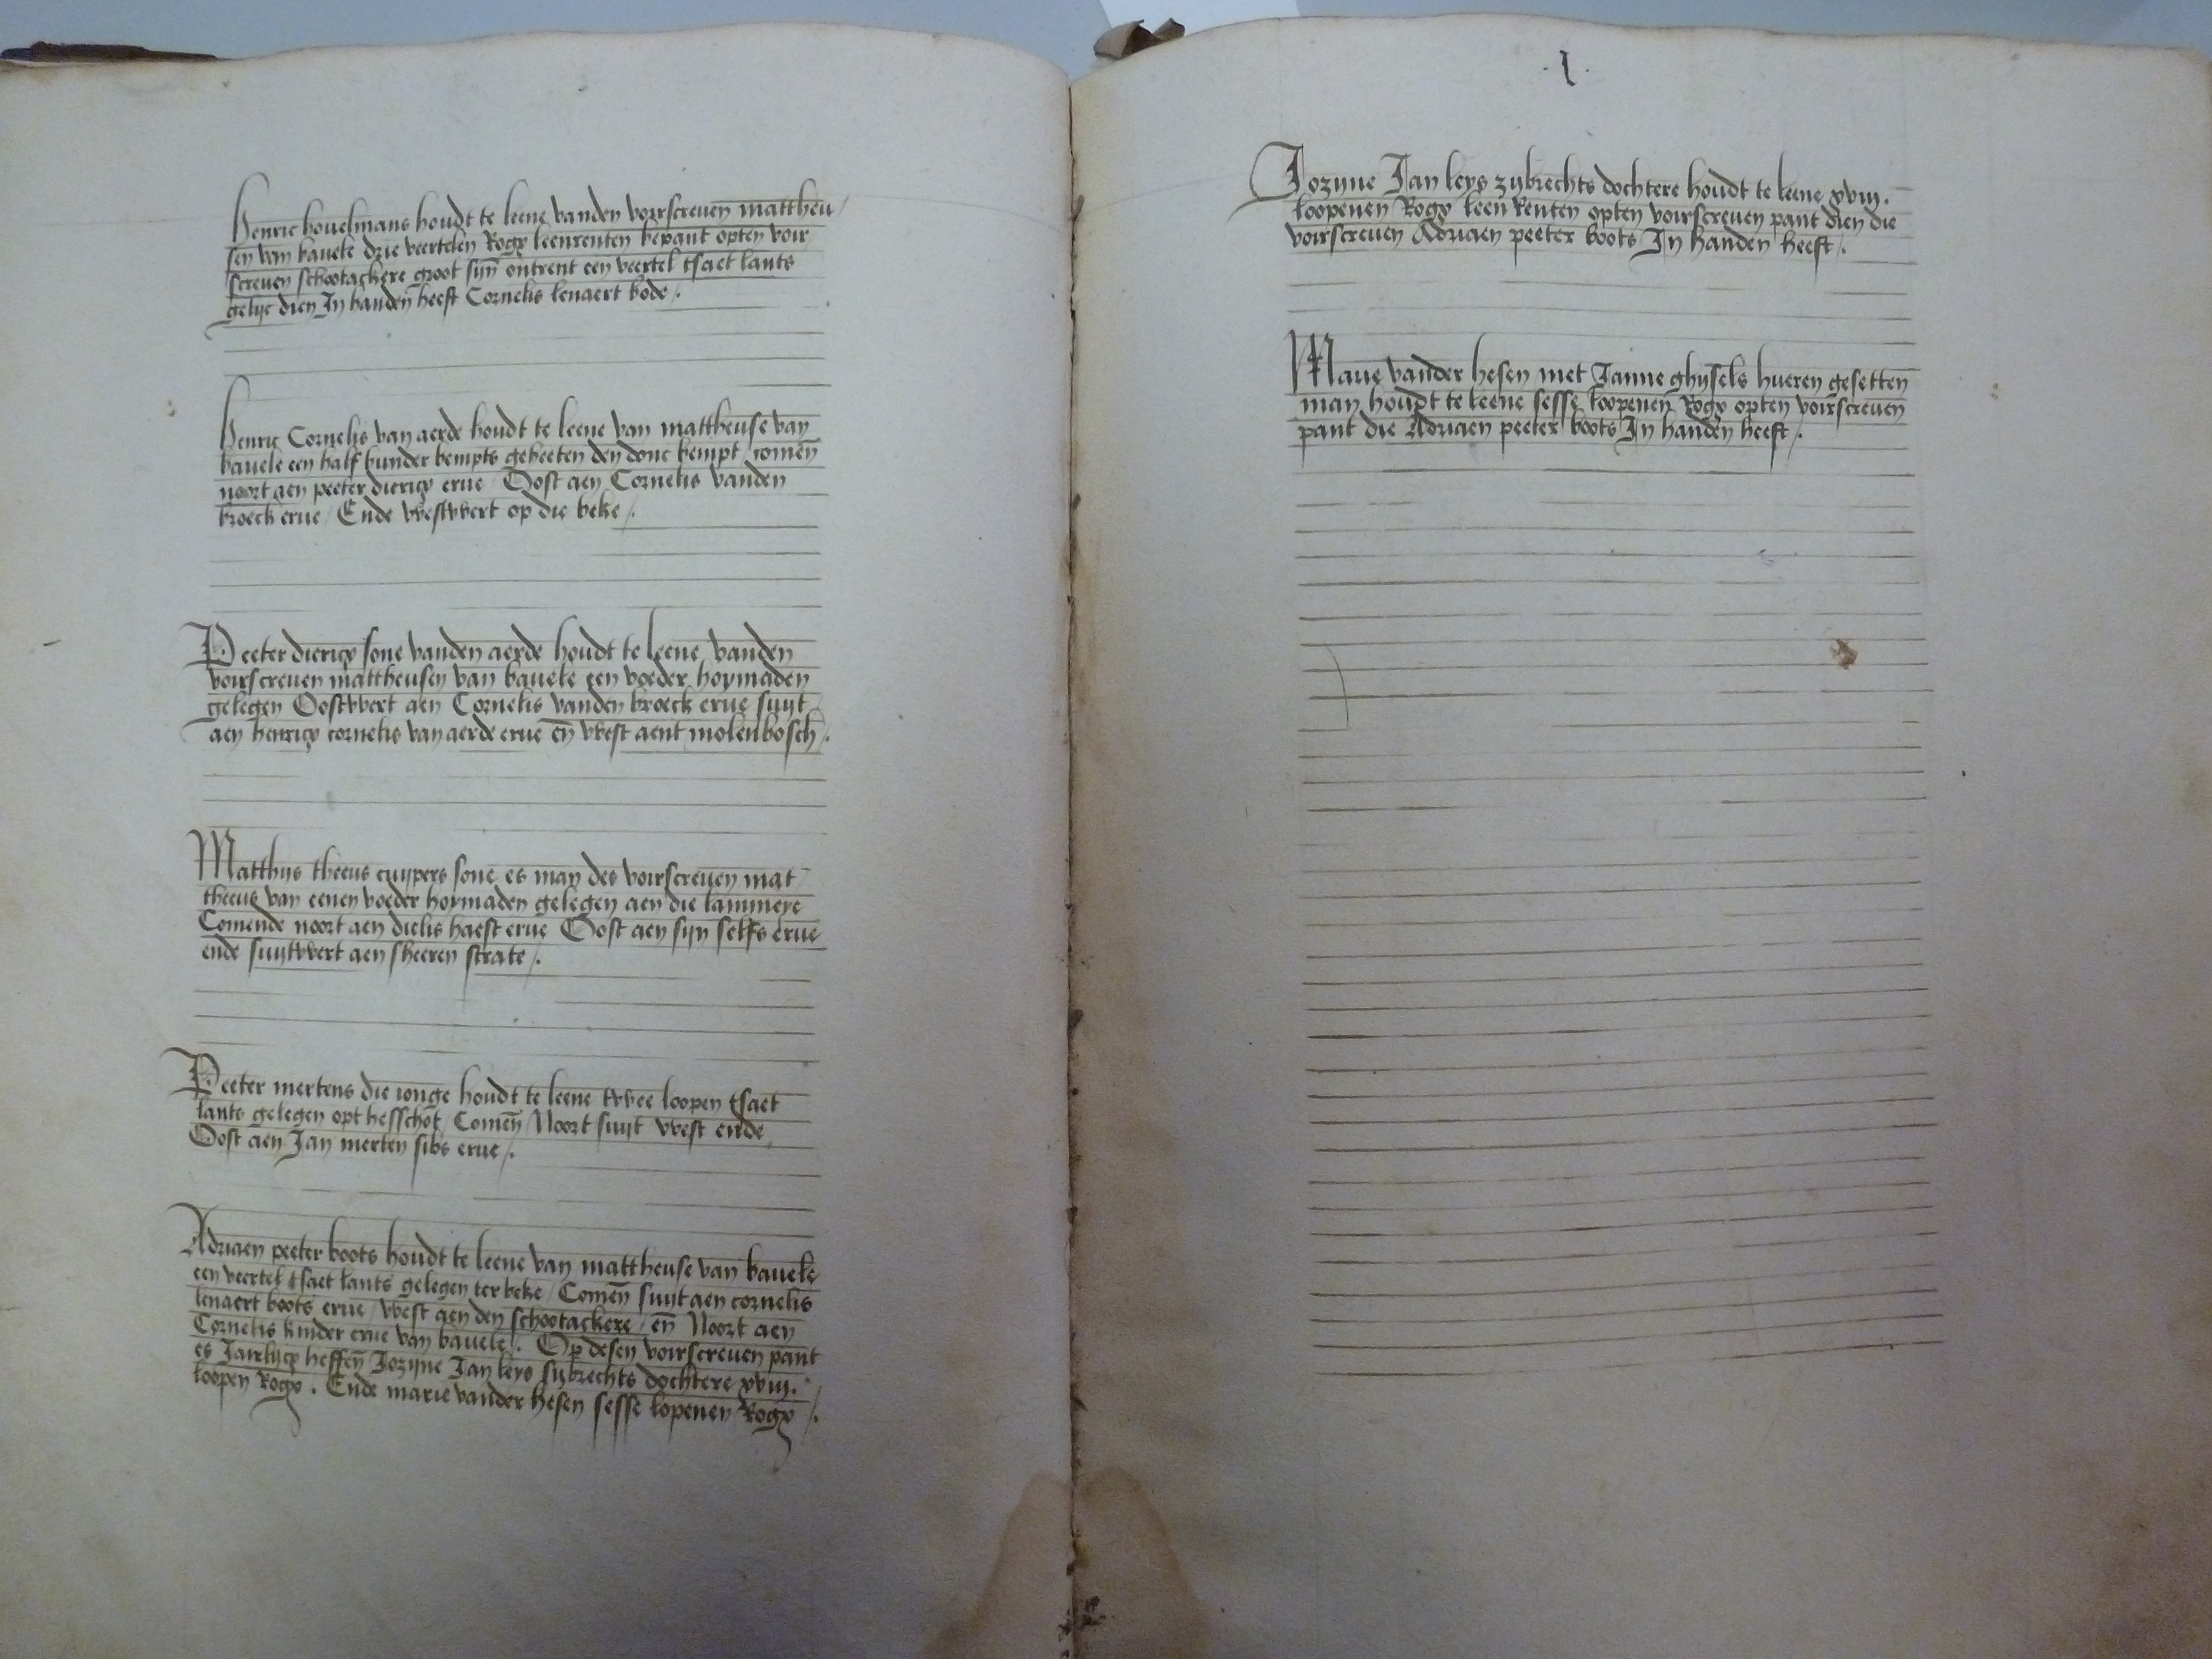 Henric bouelmans houdt te leene vanden voirscreuen mattheu
sen van bauele drie veertelen Rogx leenrenten bepant opten voir
screuen schootackere groot sijn ontrent een veertel tsaet lants
gelijc dien In handen heeft Cornelis lenaert bode /.
Henric Cornelis van aerde houdt te leene van mattheuse van
bauele een half bunder bempts geheeten den donc bempt / comen̄
noort aen peeter diericx erue / Oost aen Cornelis vanden
broeck erue / Ende westwert op die beke /.
Peeter diericx sone vanden aerde houdt te leene vanden
voirscreuen mattheusen van bauele een voeder hoymaden
gelegen Oostwert aen Cornelis vanden broeck erue suyt
aen henricx cornelis van aerde erue en̄ west aent molenbosch /.
Matthijs theeus cuypers sone es man des voirscreuen mat
theeus van eenen voeder hoymaden gelegen aen die lammere
Comende noort aen dielis haest erue Oost aen sijn selfs erue
ende suytwert aen sheeren strate /.
Peeter mertens die ionge houdt te leene twee loopen tsaet
lants gelegen opt hesschot / Comen̄ Noort suyt west ende
Oost aen Jan merten sibs erue /.
Adriaen peeter boots houdt te leene van mattheuse van bauele
een veertel tsaet lants gelegen ter beke / Comen̄ suyt aen cornelis
lenaert boots erue / west aen den schootackere / en̄ Noort aen
Cornelis kinder erue van bauele /. Op desen voirscreuen pant
es Jaerlijcx heffen̄ Jozijne Jan leys sijbrechts dochtere xviij.
loopen Rogx . Ende marie vander hesen sesse lopenen Rogx /.
.I.
Jozijne Jan leys zijbrechts dochtere houdt te leene xviij.
loopenen Rogx leen Renten opten voirscreuen pant dien die
voirscreuen Adriaen peeter boots In handen heeft /.
Marie vander hesen met Janne ghijsels hueren gesetten
man houdt te leene sesse loopenen Rogx opten voirscreuen
pant die Adriaen peeter boots In handen heeft /.